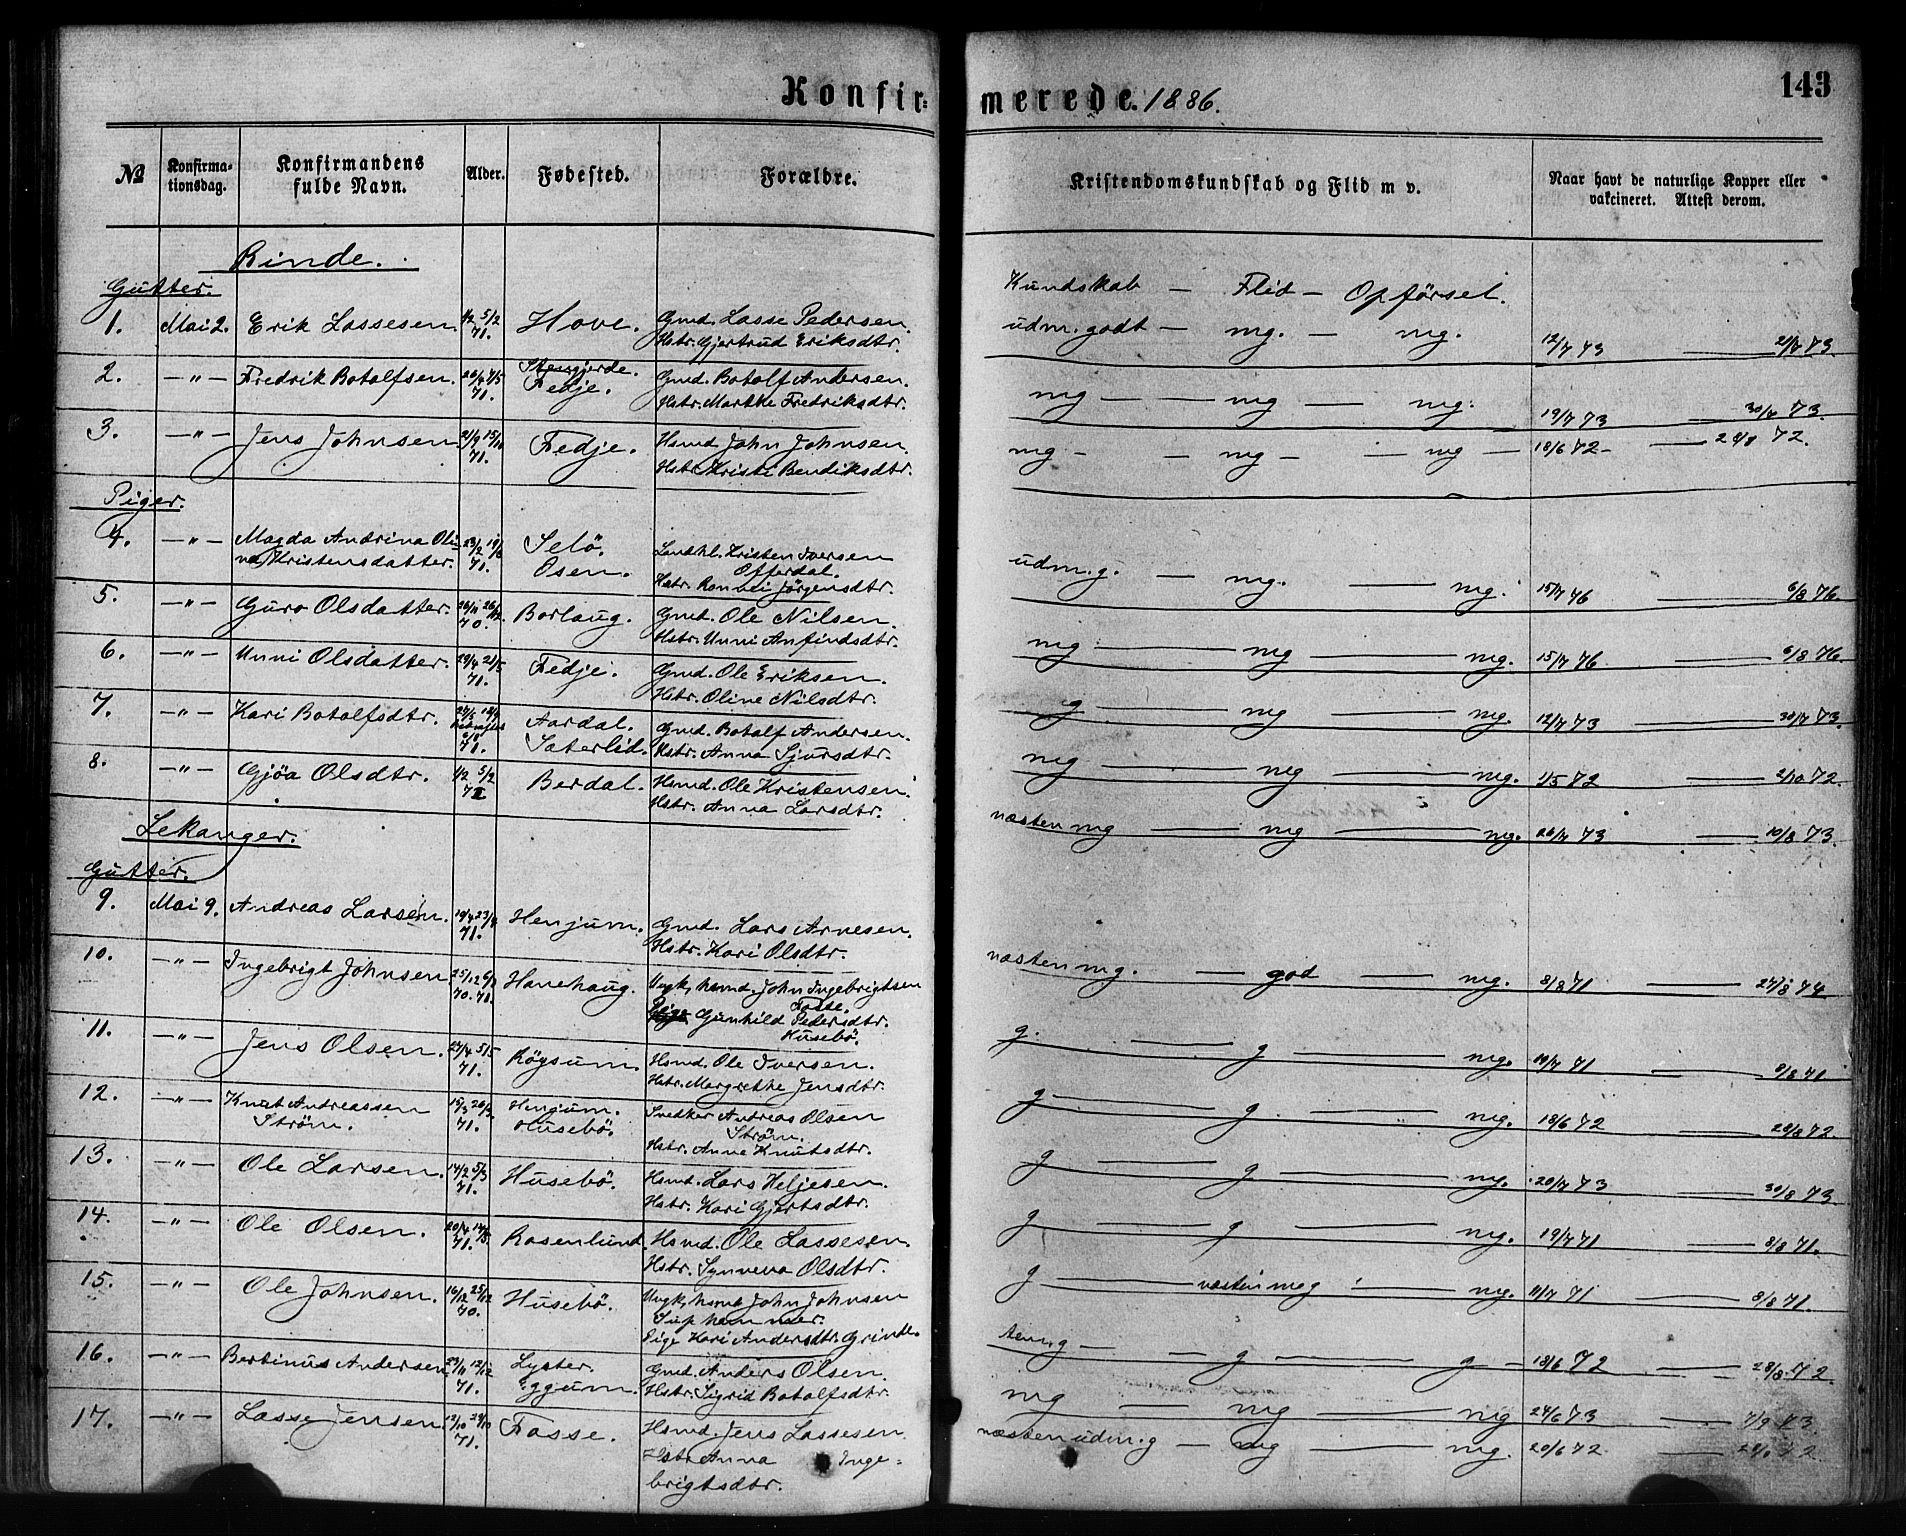 Konfirmerede. 1886.
143
№ Konfirmationsdag. Konfirmandens fulde Navn. Alder. Fødested. Forældre. Kristendomskundskab og Flid m v. Naar havt de naturlige Kopper eller vakcineret. Attest derom.
Rinde.
Gutter.
Kundskab — Flid — Opförsel.
1. Mai 2. Erik Lassesen. 1/2 5/2 71. Hove. Gmd. Lasse Pedersen. udm. godt — mg. — mg. 12/7 73 — 21/7 73.
Hstr. Gjertrud Eriksdtr.
2. —"— Fredrik Botolfsen. 26/4 7/5 71. Stengjerde. Fedje. Gmd. Botolf Andersen. mg — mg — mg. 19/7 73 — 30/7 73.
Hstr. Marthe Fredriksdtr.
3. —"— Jens Johnsen 21/9 15/10 71. Fedje. Hsmd John Johnsen. mg — mg — mg — 18/6 72 — 28/8 72.
Hstr. Kristi Bendiksdtr.
Piger.
4. —"— Magda Andrina Oli- 23/2 19/3 71. Selö. Landhl. Kristen Iversen udm. g. — mg. — mg. 15/7 76 — 6/8 76.
na Kristensdatter. Osen. Offerdal.
Hstr. Ranvei Jörgensdtr.
5. —"— Guro Olsdatter. 26/11 26/12 70. Borlaug. Gmd. Ole Nilsen. mg — mg — mg. 15/7 76 — 6/8 76
Hstr. Unni Anfindsdtr.
6. —"— Unni Olsdatter. 29/4 21/5 71. Fedje. Gmd. Ole Eriksen. g — mg — mg. 12/7 73 — 30/7 73.
Hstr. Oline Nilsdtr.
7. —"— Kari Botolfsdtr. 71. Aardal. Gmd. Botolf Andersen. mg — mg — mg. 1/5 72 — 2/10 72
Sæterlid. Hstr. Anna Sjursdtr.
8. —"— Gjöa Olsdtr. 1/2 5/2 71 Berdal. Hsmd. Ole Kristensen. næsten mg — mg — mg. 26/7 73 — 10/8 73.
Hstr. Anna Larsdtr.
Lekanger.
Gutter.
9. Mai 9. Andreas Larsen. 19/4 23/4 71. Henjum. Gmd. Lars Arnesen. næsten mg. — god — mg. 8/8 71 — 27/8 74
Hstr. Kari Olsdtr.
10. —"— Ingebrigt Johnsen 25/12 6/1 70. 71. Hanehaug. Ungk, hsmd. John Ingebrigtsen g. — g — mg. 19/7 71 — 8/8 71
Fosse.
Pige Gunhild Pedersdtr.
Husebö.
11. —"— Jens Olsen. 27/4 5/5 71. Röysum. Hsmd. Ole Iversen. g — g. — mg. 18/6 72 — 28/8 72.
Hstr. Margrethe Jensdtr.
12. —"— Knut Andreassen 15/3 26/3 71. Henjum. Snedker Andreas Olsen g — g — mg. 20/7 73 — 30/8 73
Ström. Husebö. Ström.
Hstr. Anne Knutsdtr.
13. —"— Ole Larsen. 14/2 5/3 71. Husebö. Hsmd. Lars Heljesen. g — g — mg. 19/7 71 — 8/8 71.
Hstr. Kari Gjertsdtr.
14. —"— Ole Olsen. 20/4 14/5 71. Rosenlund. Hsmd. Ole Lassesen. g — næsten meg — mg. 11/7 71 — 8/8 71.
Hstr. Synneva Olsdtr.
15. —"— Ole Johnsen. 16/12 25/12 70. Husebö. Ungk, hsmd John Johnsen tem. g — g — g — 18/6 72 — 28/8 72.
Suphammer.
Pige Kari Andersdtr. Grinde.
16. —"— Bertinus Andersen 23/11 12/12 71. Lyster. Gmd. Anders Olsen. mg — mg — mg 24/6 73 — 7/9 73.
Eggum. Hstr. Sigrid Botolfsdtr
17. —"— Lasse Jensen. 12/10 29/10 71. Fosse. Hsmd. Jens Lassesen. næsten udm. g — mg — mg. 20/6 72 — 28/8 72.
Hstr. Anna Inge-
brigtsdtr.